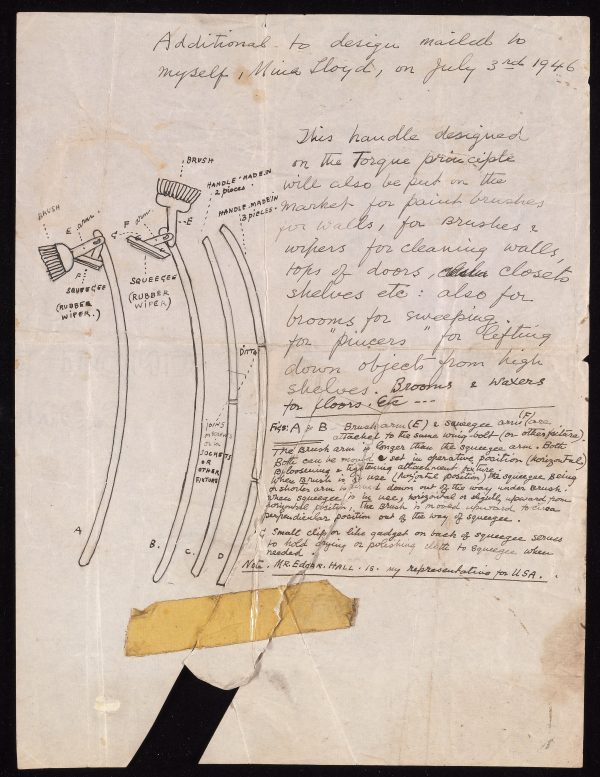 Additional to design mailed to
myself, Mina Lloyd, on July 3rd 1946
This handle designed
on the Torque principle
will also be put on the
market for paint brushes
for walls, for Brushes &
wipers for cleaning walls,
tops of doors, closets
shelves etc: also for
brooms for sweeping.
for "pincers" for lifting
down objects from high
shelves. Brooms & waxers
for floors, Etc ---
BRUSH
E arm
F
SQUEEGEE
(RUBBER
WIPER.)
BRUSH
G F arm
E
SQUEEGEE
(RUBBER
WIPER)
HANDLE-MADE IN
2 pieces.
HANDLE-MADE IN
3 PIECES.
DITTO
JOINS
SOCKETS
OR
OTHER
FIXTURE
A
B.
C.
D
Figs: A & B - Brush arm (E) & squeegee arm (F) are
attached to the same wing-bolt (or other fixture)
The Brush arm is longer than the squeegee arm. Both
Both can be set in operative position (horizontal)
By loosening & tightening attachment fixture.
When Brush is in use (horizontal position) the squeegee being
on shorter arm is turned down out of the way, under Brush.
When squeegee is in use, horizontal or slightly upward from
horizontal position, the Brush is moved upward to
perpendicular position out of the way of squeegee.
G Small clip or like gadget on back of squeegee serves
to hold drying or polishing cloth to squeegee when
needed.
Note. MR. EDGAR. HALL. IS. my representative for USA.